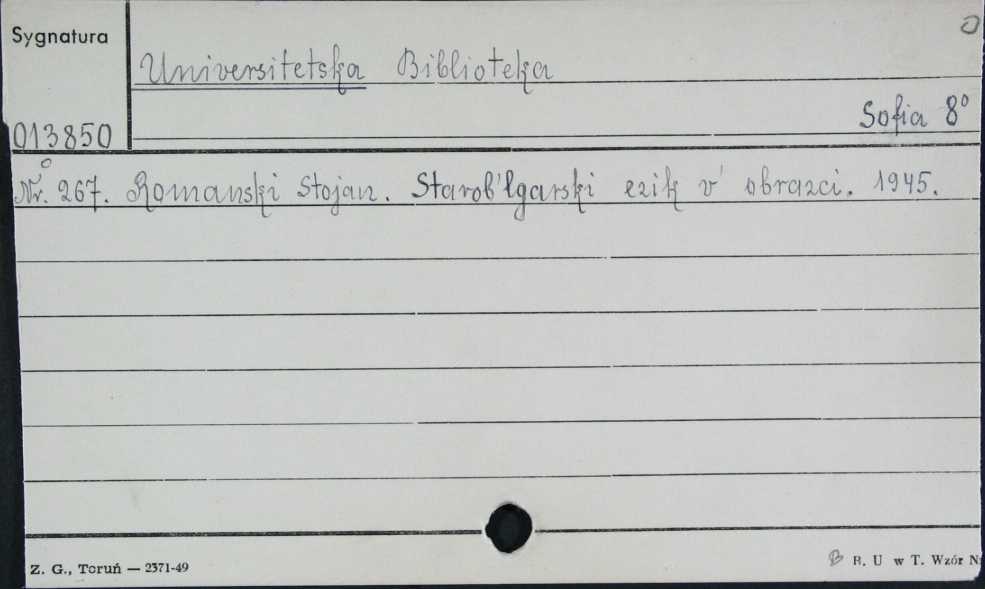 Sygnatura
0
Universitetska Biblioteka
Sofia 8°
013850
Nr. 267. Romanski Stojan. Starob'lgarski ezik v' obrazci. 1945.
Z. G., Toruń — 2371-49
B. U w T. Wzór N